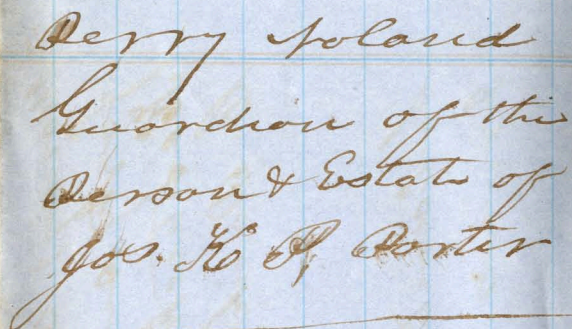 Perry Noland
Guardian of the
Person & Estate of
Jos. K P, Porter